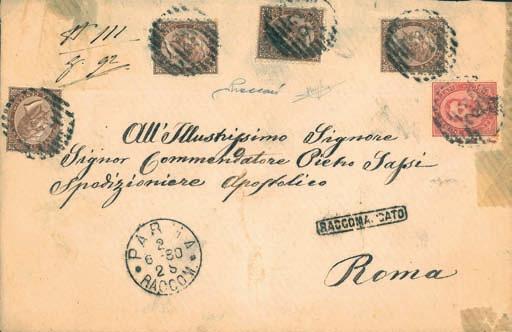 N° 111
All'Illustrissimo Signore
Signor Commendatore Pietro Saffi
Spedizioniere Apostolico
RACCOMANDATO
Roma
PARMA
2
6-80
2S
RACCOM.